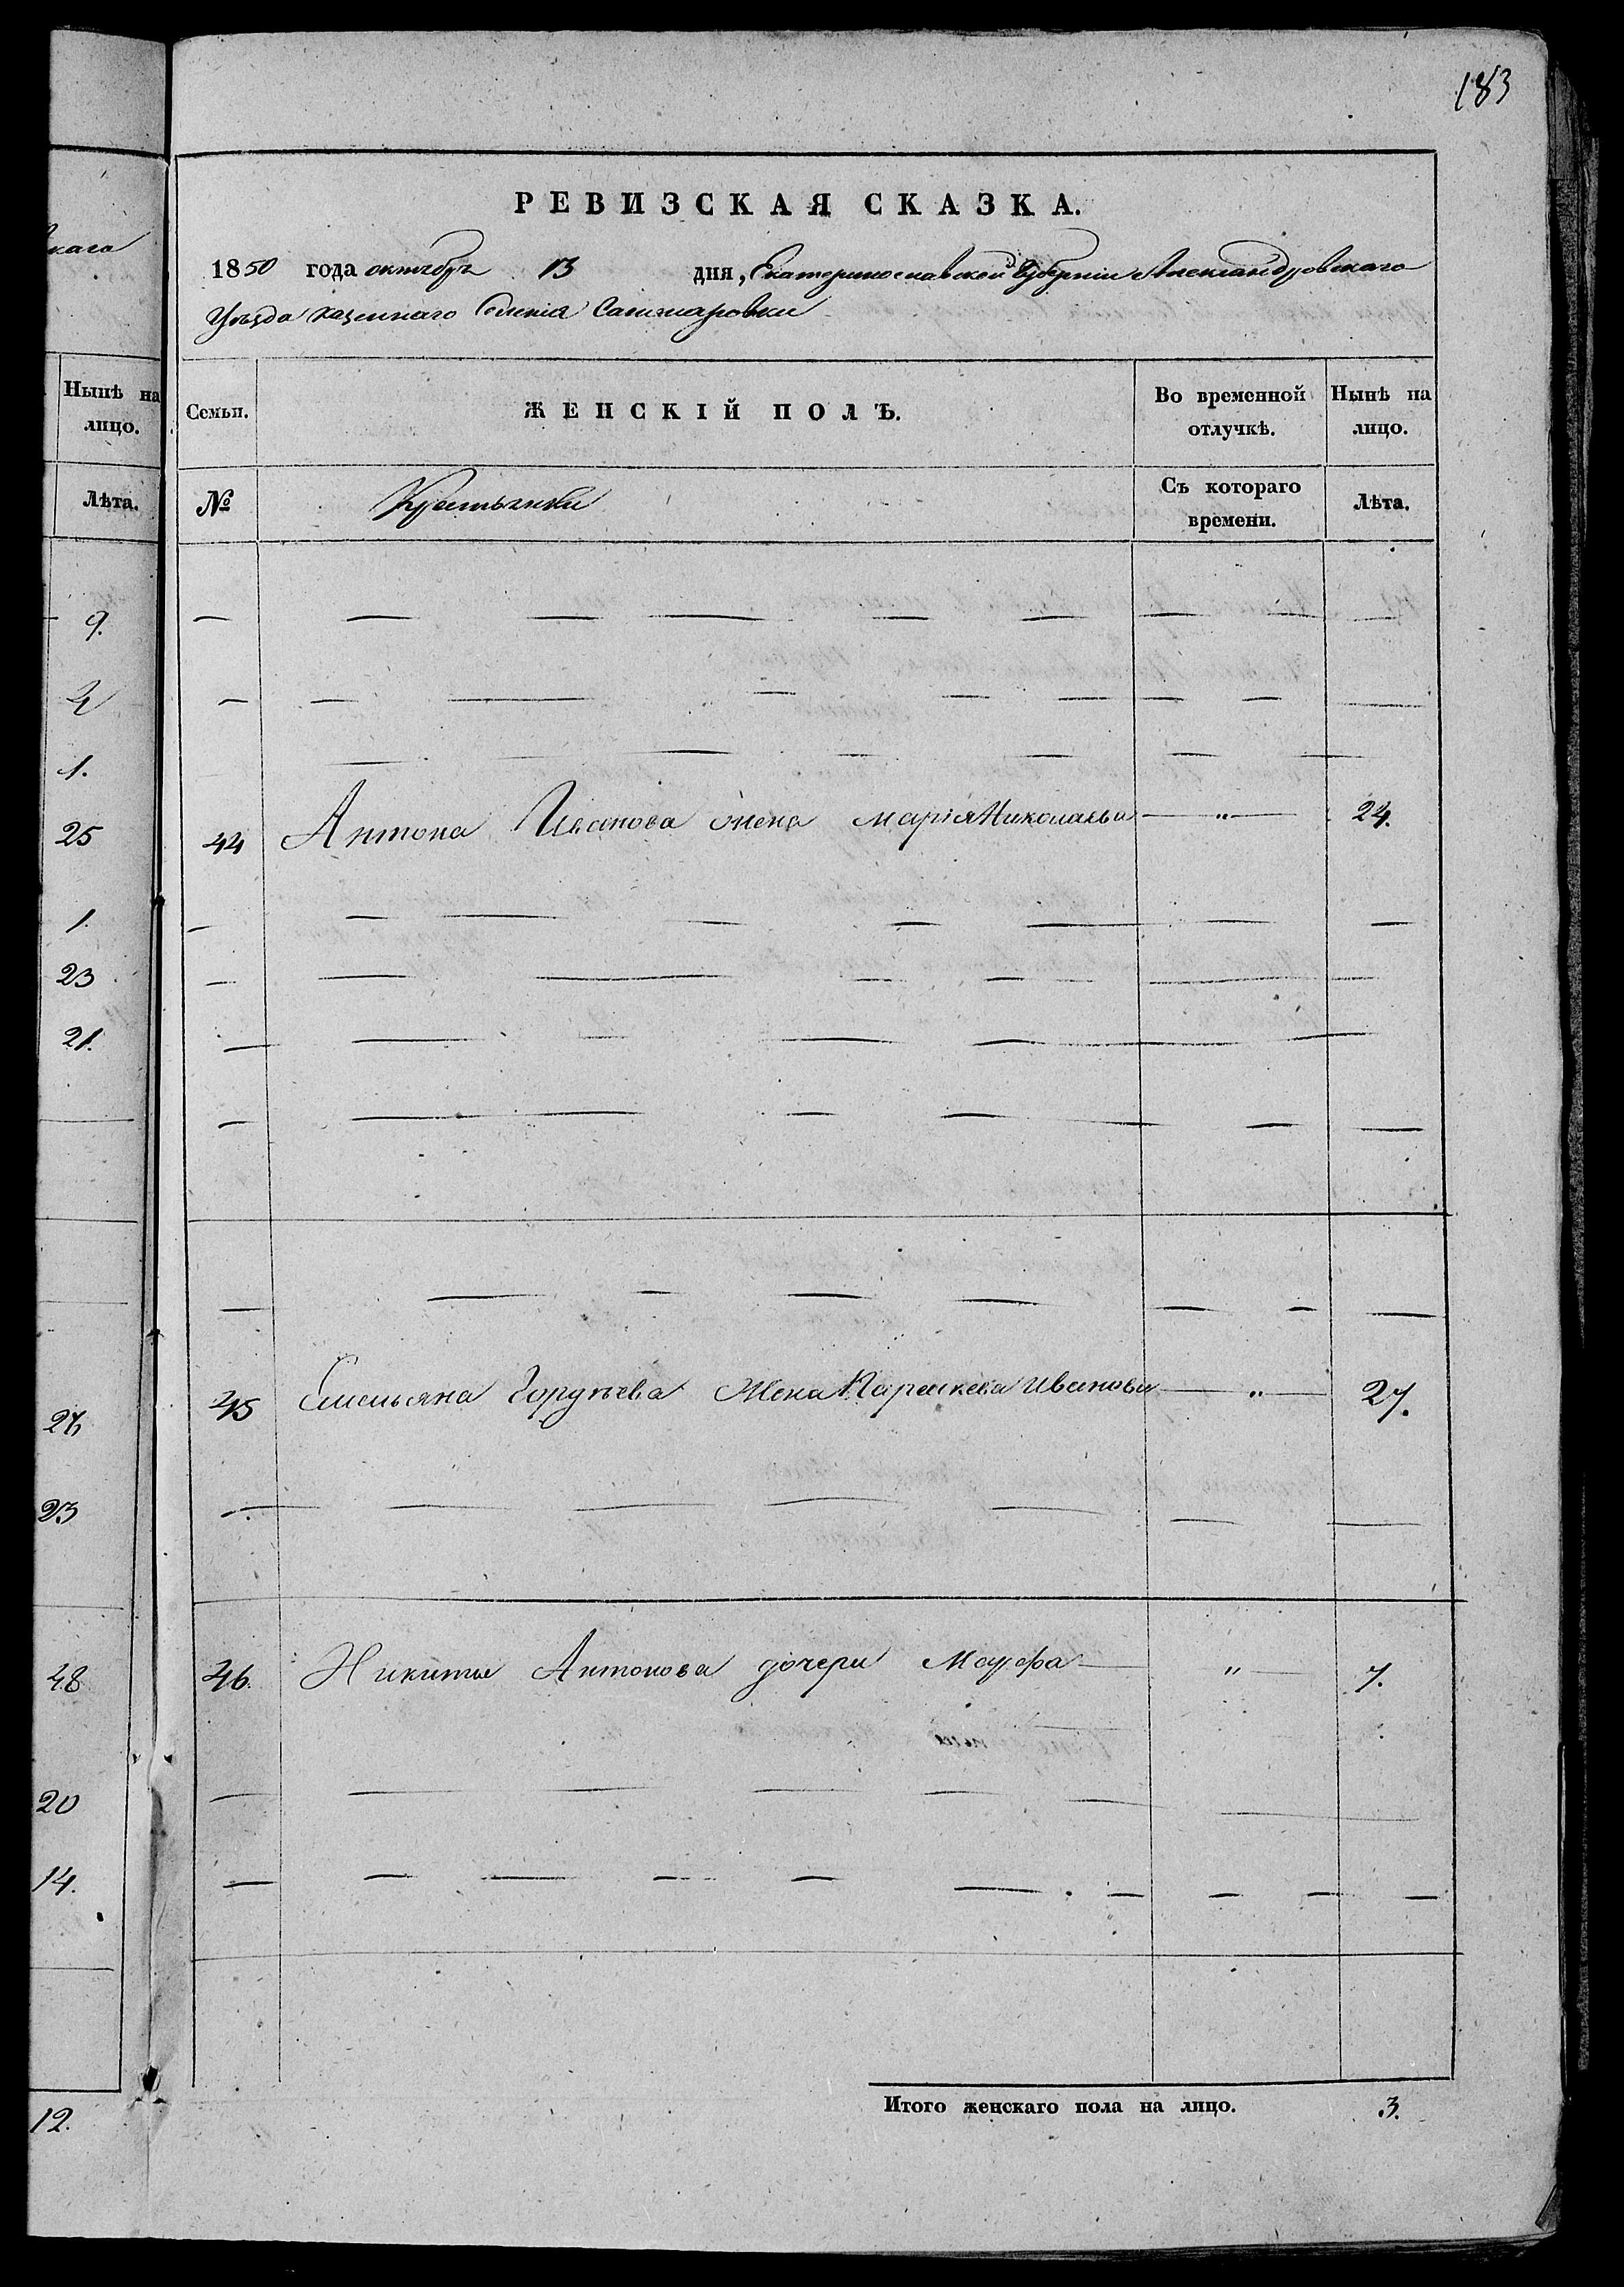 183
РЕВИЗСКАЯ СКАЗКА.
1850 года октября 13 дня, Екатеринославской Губернии Александровскаго
Уѣзда казеннаго Селенія
каго
Нынѣ на лицо.
Лѣта.
9.
1.
25
1.
23
21.
23
48
20
14.
12.
Семьи.
ЖЕНСКІЙ ПОЛЪ.
Во временной отлучкѣ.
Нынѣ на лицо.
№
Крестьянки
Съ котораго времени.
Лѣта.
44 Антона Иванова жена Марія Николаева — " — 24.
45 Емельяна жена Параскева Иванова — " — 27.
46. Никиты Антонова дочери — " — 7.
Итого женскаго пола на лицо. 3.